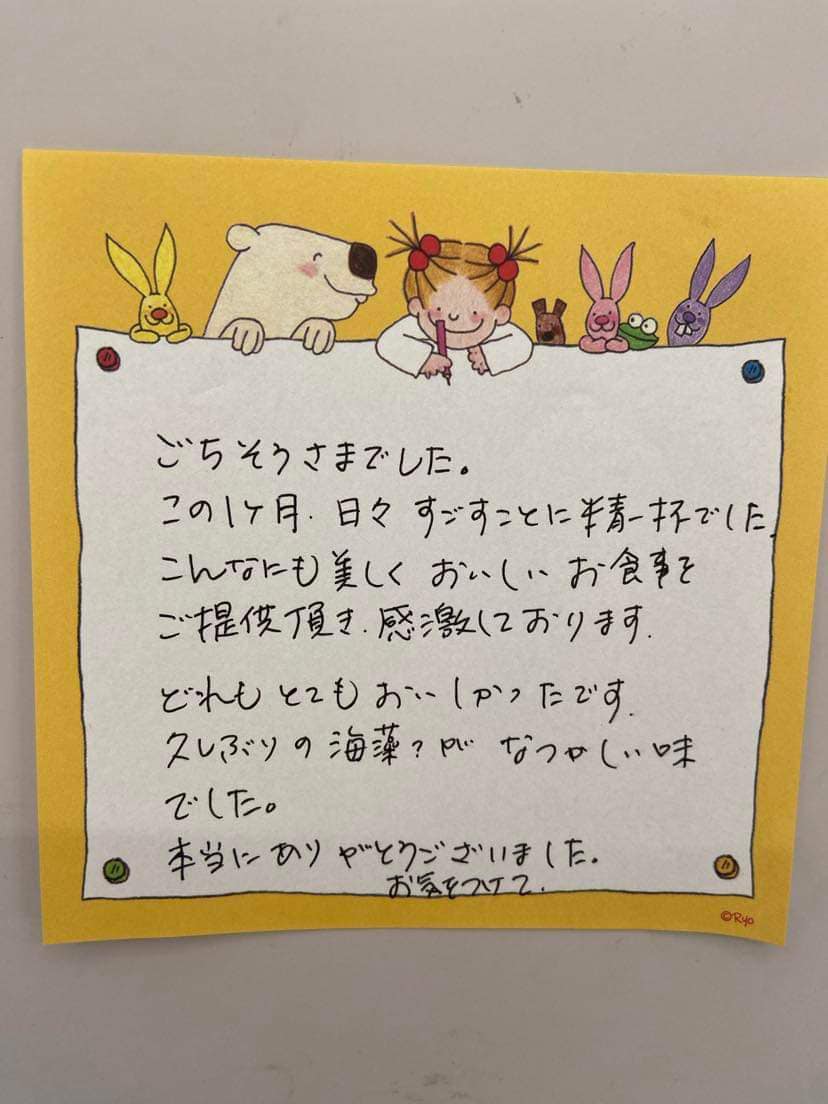 ごちそうさまでした。
この1ヶ月、日々 すごすことに精一杯でした
こんなにも美しく おいしい お食事を
ご提供頂き、感激しております。
どれも とても おいしかったです。
久しぶりの 海藻?が なつかしい味
でした。
本当に ありがとうございました。
お気をつけて。
©Ryo